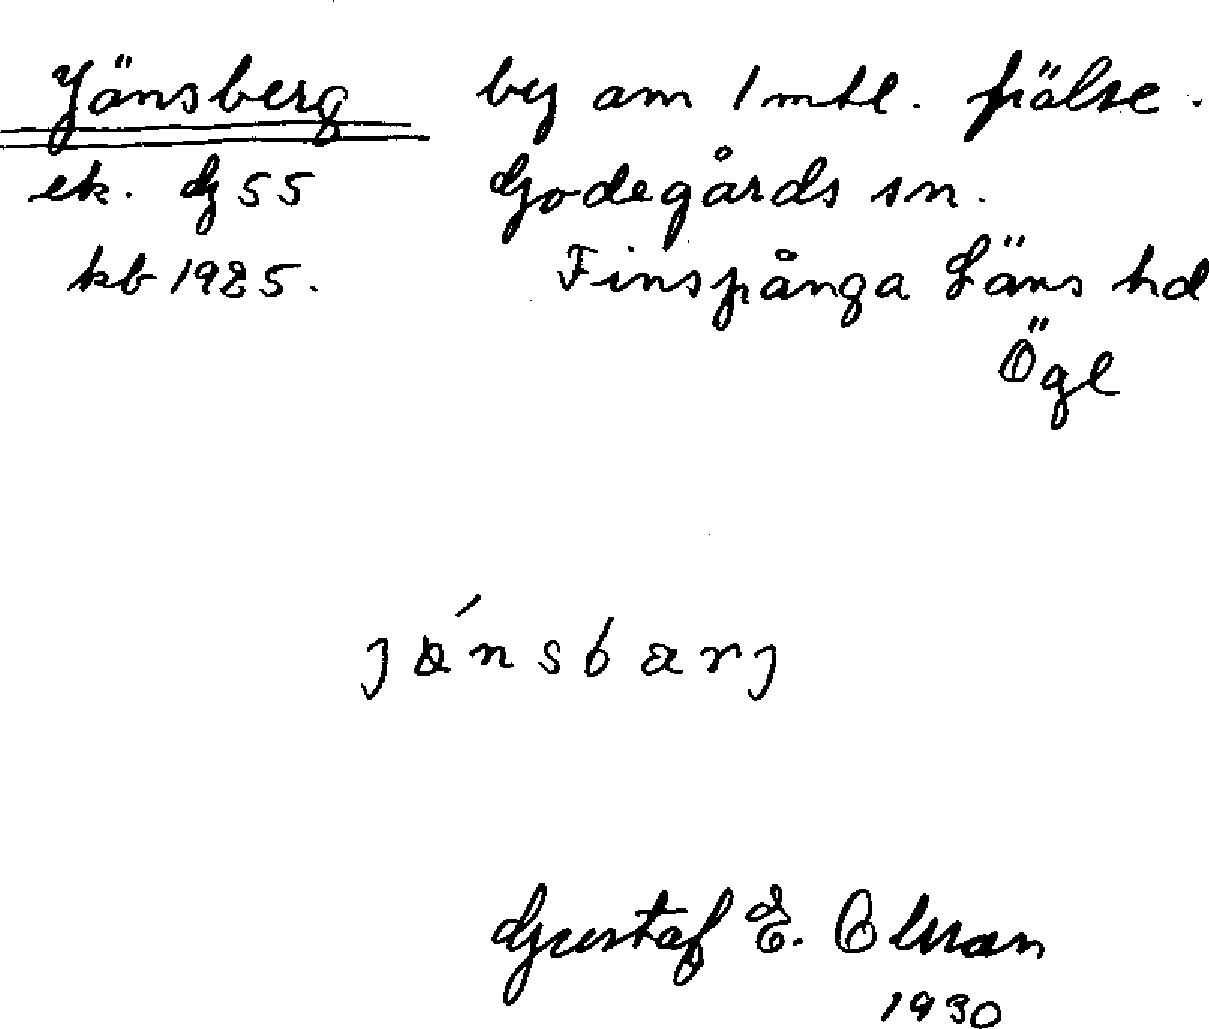 Jänsberg by om 1 mtl. frälse.
ek. G 55 Godegårds sn.
kb 1925. Finspånga Läns hd
Ögl
Gustaf E.
1930